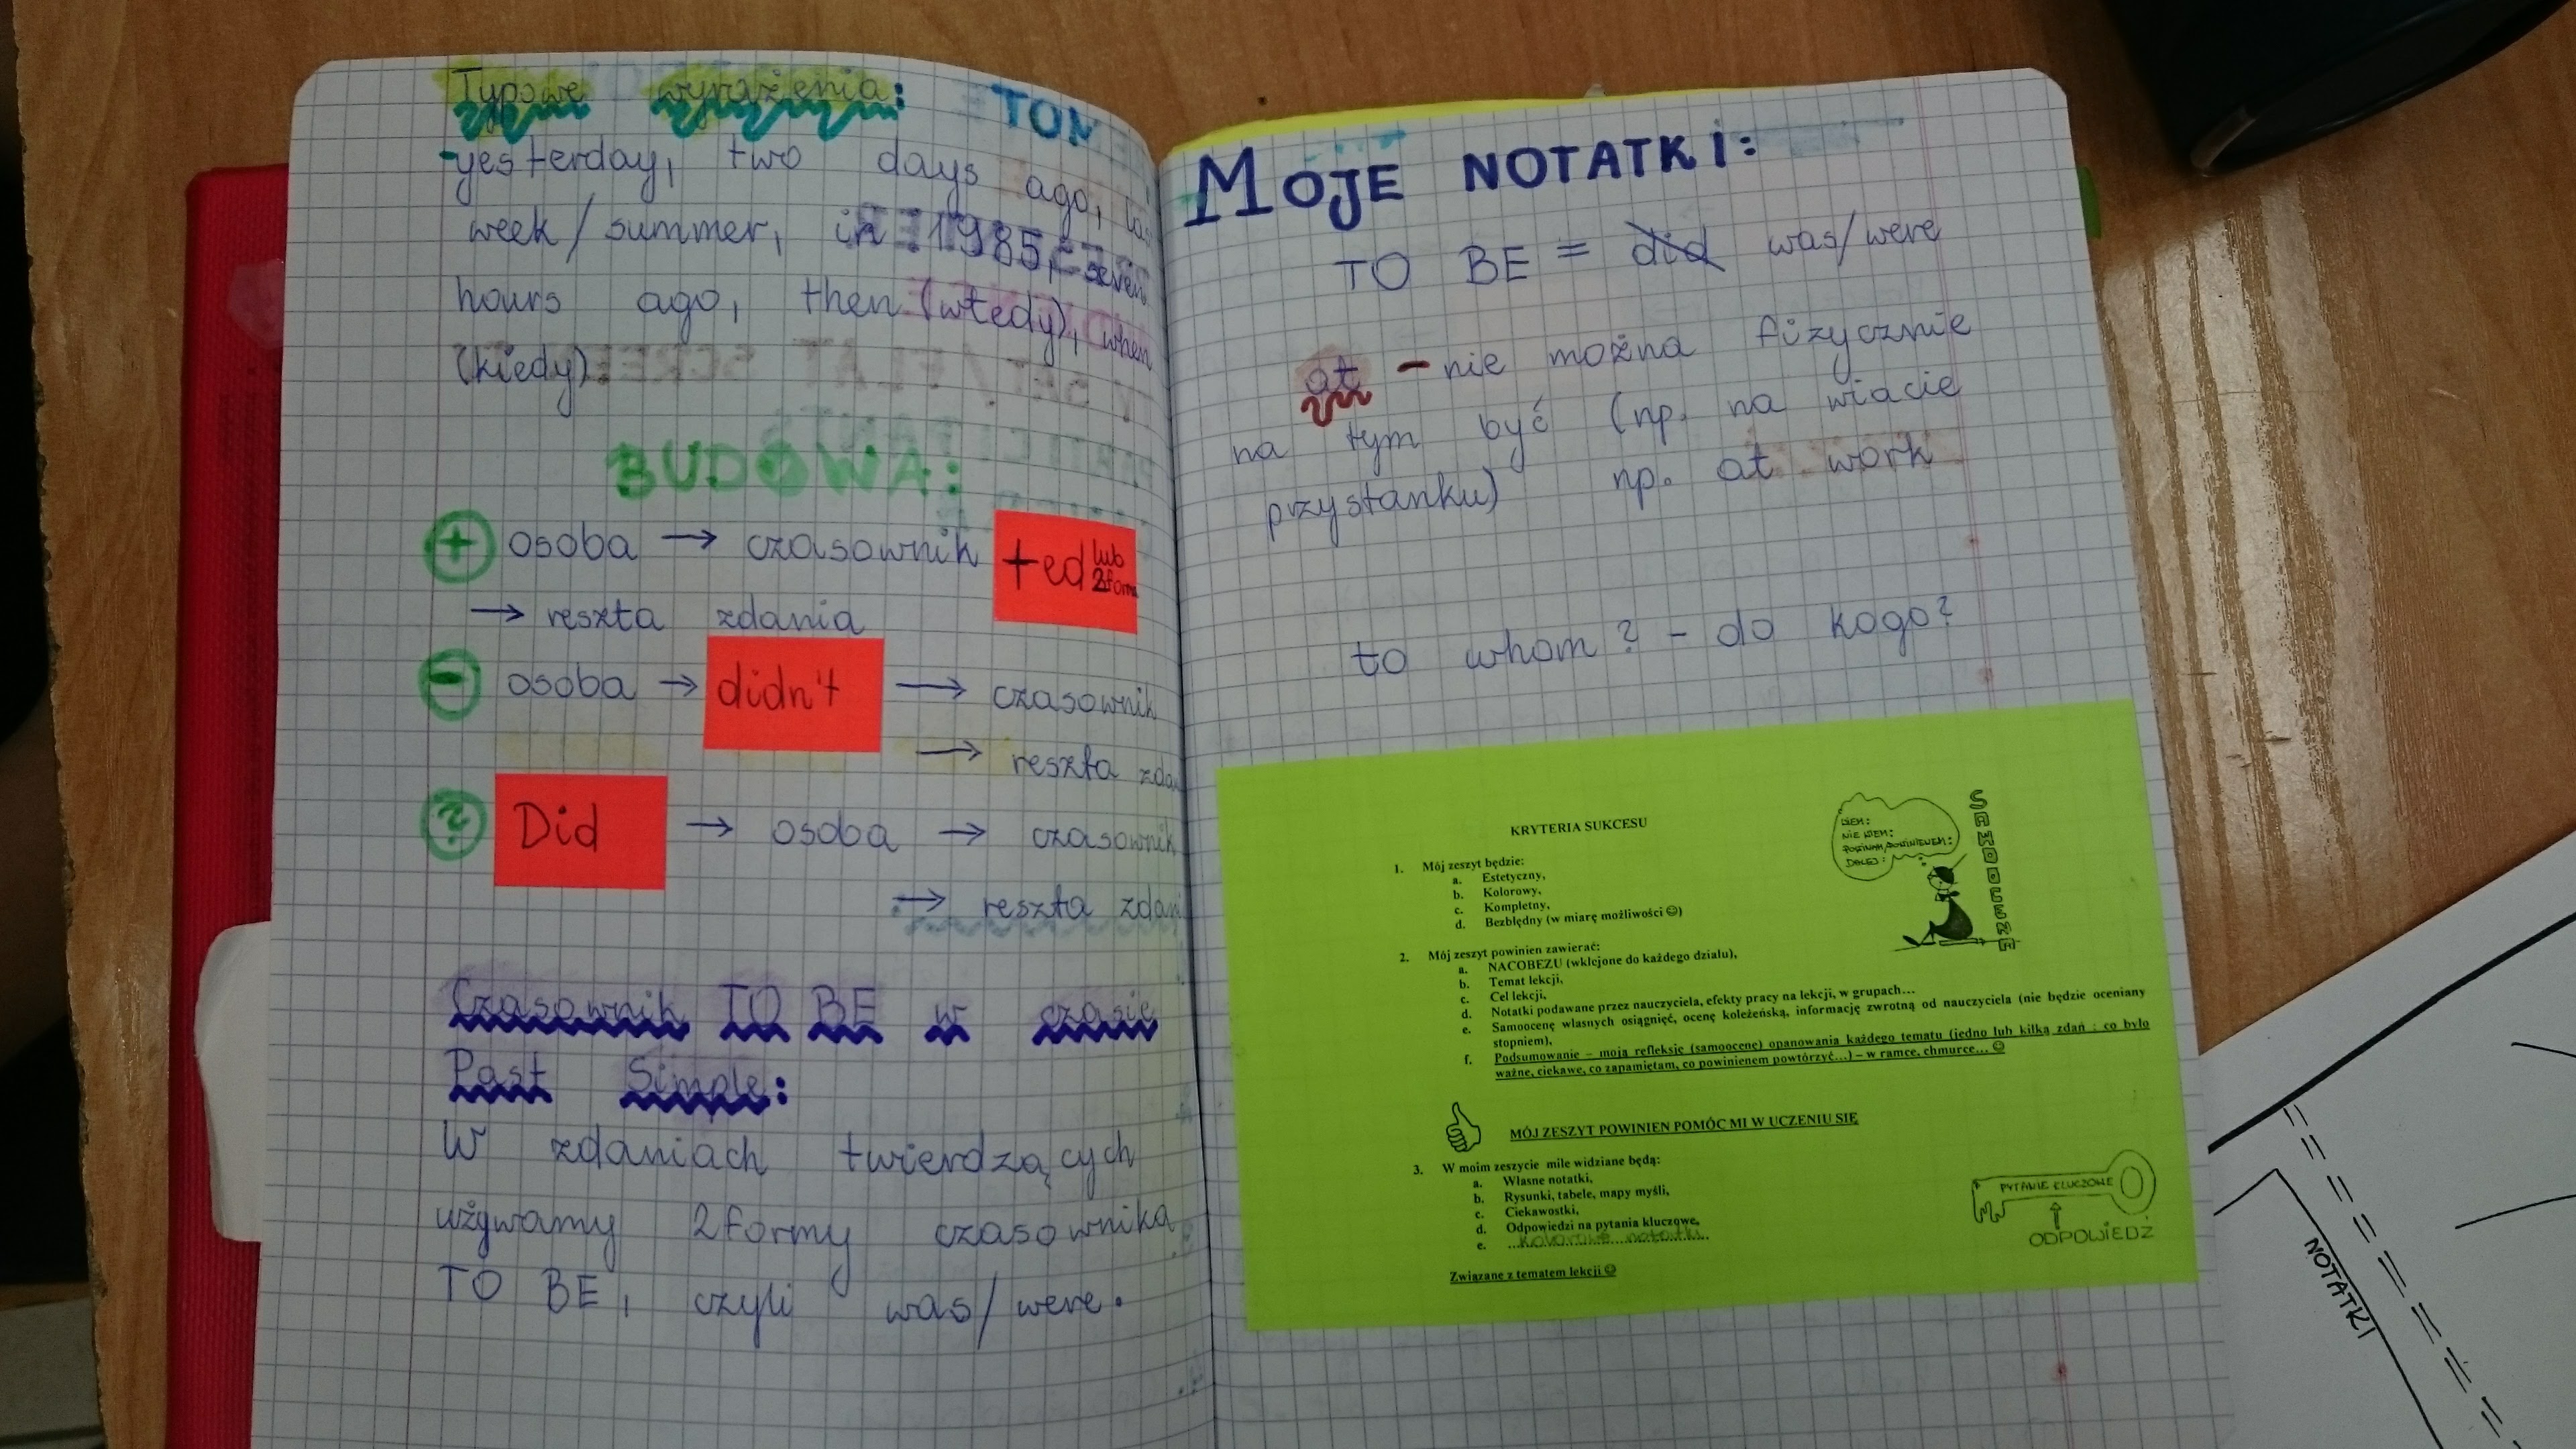 Typowe wyrażenia:
-yesterday, two days ago,
week/summer, in 1985, seven
hours ago, then (wtedy), when
(kiedy).
BUDOWA:
+ osoba → czasownik +ed lub 2forma
→ reszta zdania
- osoba → didn't → czasownik
→ reszta
? Did → osoba → czasownik
→ reszta
Czasownik TO BE w czasie
Past Simple:
W zdaniach twierdzących
używamy 2formy czasownika
TO BE, czyli was/were.
MOJE NOTATKI:
TO BE = did was/were
at - nie można fizycznie
na tym być (np. na wiacie
przystanku) np. at work
to whom? - do kogo?
KRYTERIA SUKCESU
1. Mój zeszyt będzie:
a. Estetyczny,
b. Kolorowy,
c. Kompletny,
d. Bezbłędny (w miarę możliwości ☺)
WIEM:
NIE WIEM:
POWINNAM/POWINIENEM:
DALEJ:
SAMOOCENE
2. Mój zeszyt powinien zawierać:
a. NACOBEZU (wklejone do każdego działu),
b. Temat lekcji,
c. Cel lekcji,
d. Notatki podawane przez nauczyciela, efekty pracy na lekcji, w grupach…
e. Samoocenę własnych osiągnięć, ocenę koleżeńską, informację zwrotną od nauczyciela (nie będzie oceniany
stopniem),
f. Podsumowanie – moją refleksję (samoocenę) opanowania każdego tematu (jedno lub kilka zdań : co było
ważne, ciekawe, co zapamiętam, co powinienem powtórzyć…) – w ramce, chmurce… ☺
MÓJ ZESZYT POWINIEN POMÓC MI W UCZENIU SIĘ
3. W moim zeszycie mile widziane będą:
a. Własne notatki,
b. Rysunki, tabele, mapy myśli,
c. Ciekawostki,
d. Odpowiedzi na pytania kluczowe,
e. ...kolorowe notatki...
Związane z tematem lekcji ☺
PYTANIE KLUCZOWE
ODPOWIEDŹ
NOTATKI